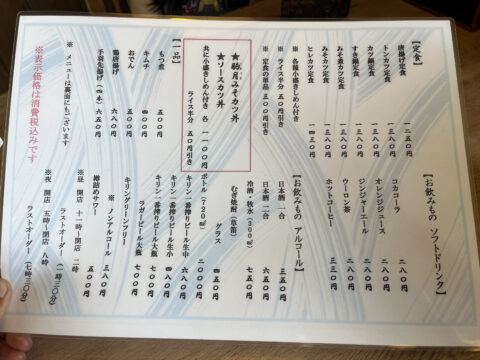 【定食】
唐揚げ定食 一二五〇円
トンカツ定食 一三八〇円
カツ鍋定食 一三八〇円
すき鍋定食 一三八〇円
みそ煮カツ定食 一三八〇円
みそカツ定食 一三八〇円
ヒレカツ定食 一四三〇円
※ 各種小盛きしめん付き
※ ライス半分 五〇円引き
※ 定食の単品 三〇〇円引き
月みそカツ丼
★ソースカツ丼
共に小盛きしめん付き 各 一一〇〇円
ライス半分 五〇円引き
【一品】
もつ煮 五〇〇円
おでん
キムチ 四〇〇円
鶏唐揚げ 六八〇円
手羽先揚げ(四本) 六五〇円
※ メニューは裏面にもございます
※表示価格は消費税込みです
【お飲みもの ソフトドリンク】
コカコーラ 二八〇円
オレンジジュース 二八〇円
ジンジャーエール 二八〇円
ウーロン茶 二八〇円
ホットコーヒー 三三〇円
【お飲みもの アルコール】
日本酒 一合
日本酒 二合 七五〇円
冷酒・牧水(300ml)
むぎ焼酎(草笛)
グラス 四五〇円
ボトル(720ml) 二〇〇〇円
キリン一番搾りビール生中
キリン一番搾りビール生小 四八〇円
キリン一番搾りビール大瓶 七〇〇円
ラガービール大瓶 七〇〇円
キリングリーンフリー
※ ノンアルコール 三八〇円
樽詰めサワー 五〇〇円
※昼 開店 十一時〜閉店 二時
ラストオーダー(一時三〇分)
※夜 開店 五時〜閉店 八時
ラストオーダー(七時三〇分)